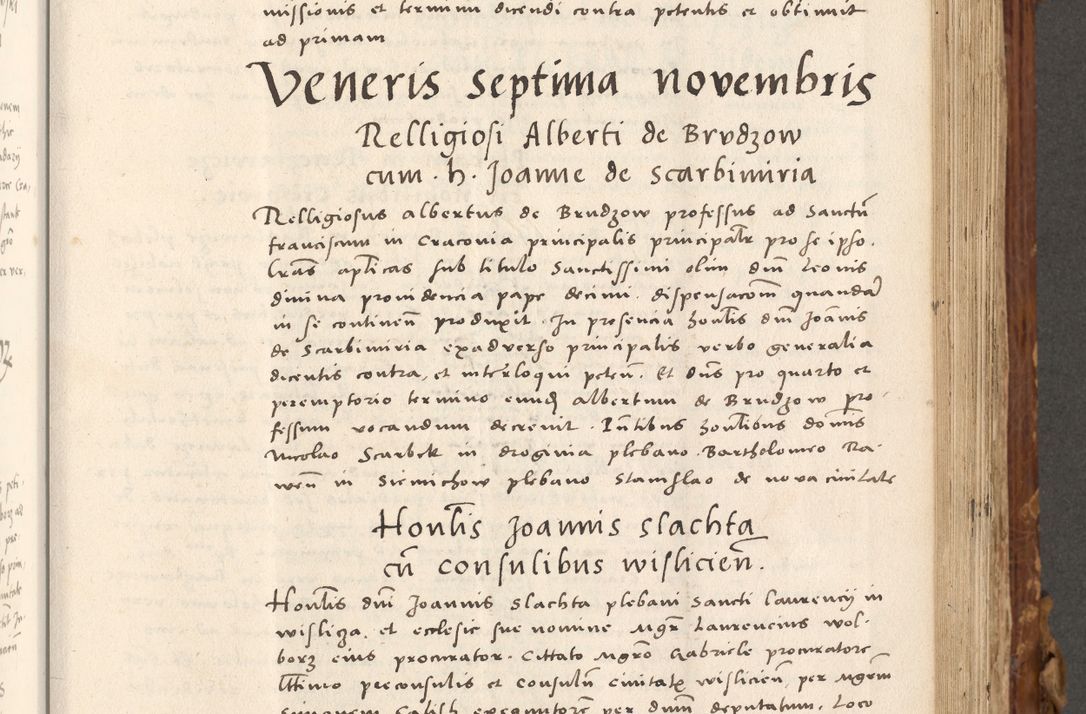 missionis et termini dicendi contra petentis et obtinuit
ad primam
Veneris septima novembris
Relligiosi Alberti de Brudzow
cum . h . Joanne de Scarbimiria
Relligiosus albertus de Brudzow professus ad Sanctū
franciscum in Cracovia principalis principalr pro se ipso .
lrās aplicas sub titulo Sanctissimi olim dm̄ Leonis
divina providencia pape decimi . dispensacom̄ quandā
in se continen̄ produxit . In presencia honlis dm̄ Joānis
de Scarbimiria exadverso principalis verbo generalia
dicentis contra, et interloqui peten̄. Et dn̄s pro quarto et
peremptorio termino eundē albertum de Brudzow pro-
fessum vocandum decrevit . Pn̄tibus honlibus dom̄is
Nicolao Scarbek in droginia plebano . Bartholomeo Ra-
wen̄ in Siemichow plebano Stanislao de nova civitate
Honlis Joannis Slachta
cū consulibus wislicien̄ .
Honlis dm̄ Joannis Slachta plebani Sancti Laurencij in
wislicza . et ecclesie sue nomine Mgr̄ Laurencius wol-
borz eius procurator . Cittato Mgrō Gabriele procuratore
lttimo preconsulis et consulū civitatꝭ wislicien̄, per Mgrm̄
executorē per dnm̄ deputatum . Loco